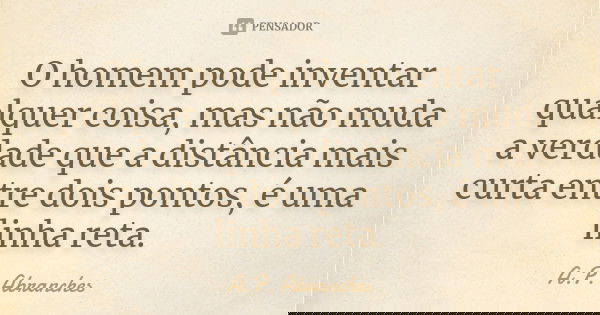 PENSADOR
O homem pode inventar
qualquer coisa, mas não muda
a verdade que a distância mais
curta entre dois pontos, é uma
linha reta.
A. P. Abranches